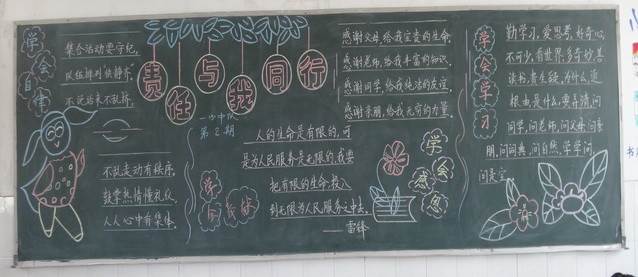 学会自律
集合活动要守纪,
队伍排列"快静齐"
不说话来不乱挤。
不乱走动有秩序,
鼓掌热情懂礼仪,
人人心中有集体。
责任与我同行
一(4)中队
第2期
感谢父母,给我宝贵的生命
感谢老师,给我丰富的知识,
感谢同学,给我纯洁的友谊,
感谢亲朋,给我无穷的力量。
人的生命是有限的,可
是为人民服务是无限的,我要
把有限的生命,投入
到无限为人民服务之中去。
——雷锋
学会
感恩
学会学习
勤学习,爱思考,好奇心,
不可少,看世界,多奇妙,善
读书,贵在疑,为什么,追
根由,是什么,要弄清,问
同学,问老师,问父母,问亲
朋,问词典,问自然,学学问
问是宝。